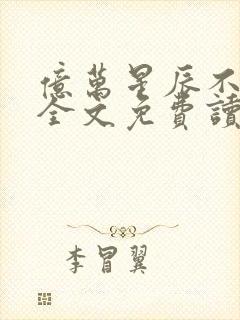 億萬星辰不
全文免費讀
李冒翼